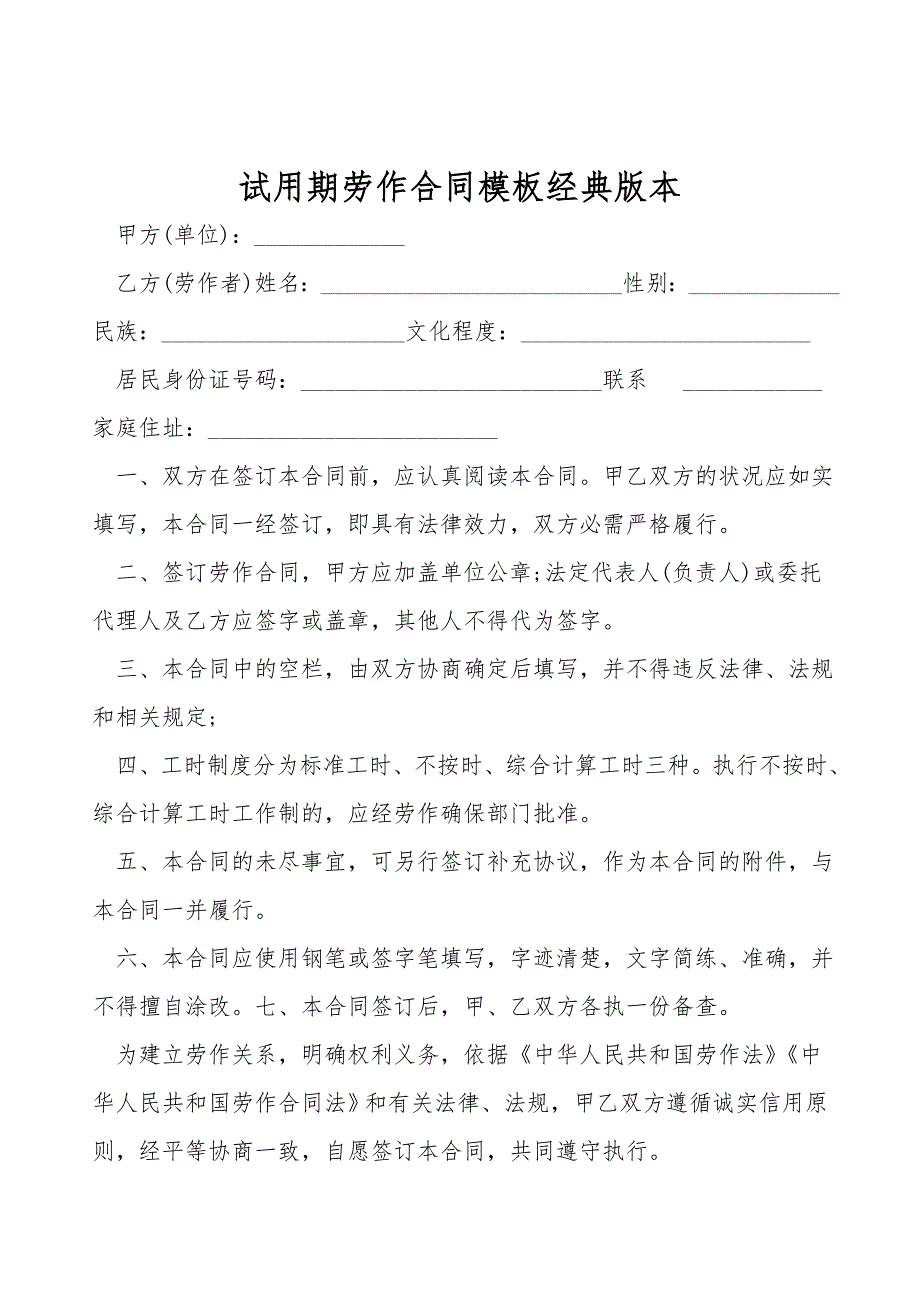 试用期劳作合同模板经典版本
甲方(单位)：_____________
乙方(劳作者)姓名：__________________________性别：_____________
民族：_____________________文化程度：_________________________
居民身份证号码：__________________________联系 ____________
家庭住址：_________________________
一、双方在签订本合同前，应认真阅读本合同。甲乙双方的状况应如实
填写，本合同一经签订，即具有法律效力，双方必需严格履行。
二、签订劳作合同，甲方应加盖单位公章;法定代表人(负责人)或委托
代理人及乙方应签字或盖章，其他人不得代为签字。
三、本合同中的空栏，由双方协商确定后填写，并不得违反法律、法规
和相关规定;
四、工时制度分为标准工时、不按时、综合计算工时三种。执行不按时、
综合计算工时工作制的，应经劳作确保部门批准。
五、本合同的未尽事宜，可另行签订补充协议，作为本合同的附件，与
本合同一并履行。
六、本合同应使用钢笔或签字笔填写，字迹清楚，文字简练、准确，并
不得擅自涂改。七、本合同签订后，甲、乙双方各执一份备查。
为建立劳作关系，明确权利义务，依据《中华人民共和国劳作法》《中
华人民共和国劳作合同法》和有关法律、法规，甲乙双方遵循诚实信用原
则，经平等协商一致，自愿签订本合同，共同遵守执行。